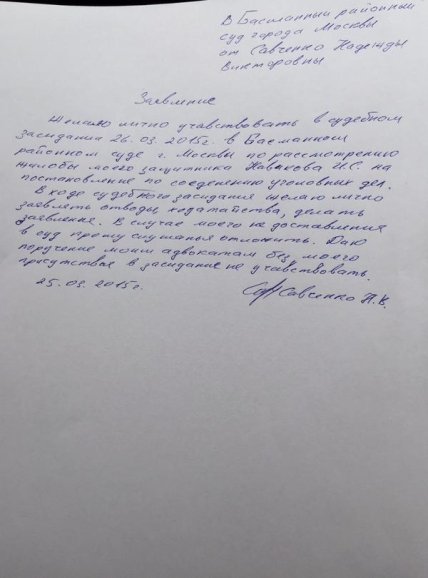 В Басманный районный
суд города Москвы
от Савченко Надежды
Викторовны
Заявление
Желаю лично учавствовать в судебном
заседании 26.03.2015г. в Басманном
районном суде г. Москвы по рассмотрению
жалобы моего защитника Новикова И.С. на
постановление по соединению уголовных дел.
В ходе судебного заседания желаю лично
заявлять отводы, ходатайства, делать
заявления. В случае моего не доставления
в суд прошу слушанья отложить. Даю
поручение моим адвокатам без моего
присутствия в заседание не учавствовать.
25.03.2015г. Савченко Н.В.